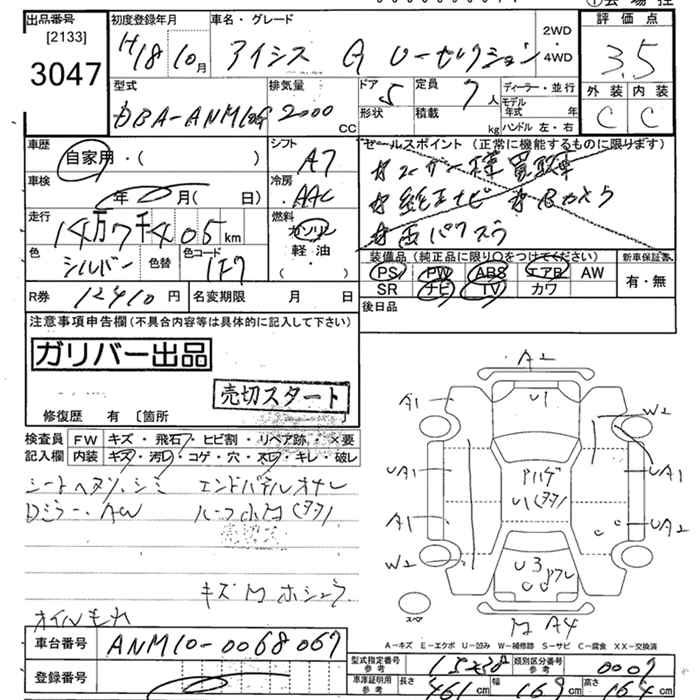 出品番号
[2133]
3047
初度登録年月
H18 10月
車名・グレード
アイシス G U-セレクション
2WD
4WD
評価点
3.5
外装 内装
C C
型式
DBA-ANM10G
排気量
2000 CC
ドア
5
形状
定員
7人
積載
kg
ディーラー・並行
モデル年式 年
ハンドル 左・右
車歴
自家用・( )
シフト
A7
車検
年 月( 日)
冷房
AAC
走行
14万7千405km
燃料
ガソリン
軽油
・( )
色
シルバー
色替
色コード
1F7
R券 12410円
名変期限 月 日
セールスポイント(正常に機能するものに限ります)
ユーザー様買取車
純正ナビ Bカメラ
両パワスラ
装備品(純正品に限り○をつけてください)
PS PW ABS エアB AW
SR ナビ TV カワ
新車保証書
有・無
後日品
注意事項申告欄(不具合内容等は具体的に記入して下さい)
ガリバー出品
売切スタート
修復歴 有 〔箇所
検査員記入欄
FW キズ・飛石・ヒビ割・リペア跡・×要
内装 キズ・汚レ・コゲ・穴・スレ・キレ・破レ
シートヘタリ、シミ エンドパネルオサレ
Dミラー、AW ルーフ小凹(多タ)
キズ凹ホシュウ
オイルモレ
A2
A1
U1
W2
UA1
UA1
A1
UA2
W2
U3
スペア
A4
A-キズ E-エクボ U-凹み W-補修跡 S-サビ C-腐食 XX-交換済
車台番号 ANM10-0068067
登録番号
型式指定番号 参考
類別区分番号 参考 0007
車庫証明用 参考 長さ 461cm 幅 169cm 高さ 164cm